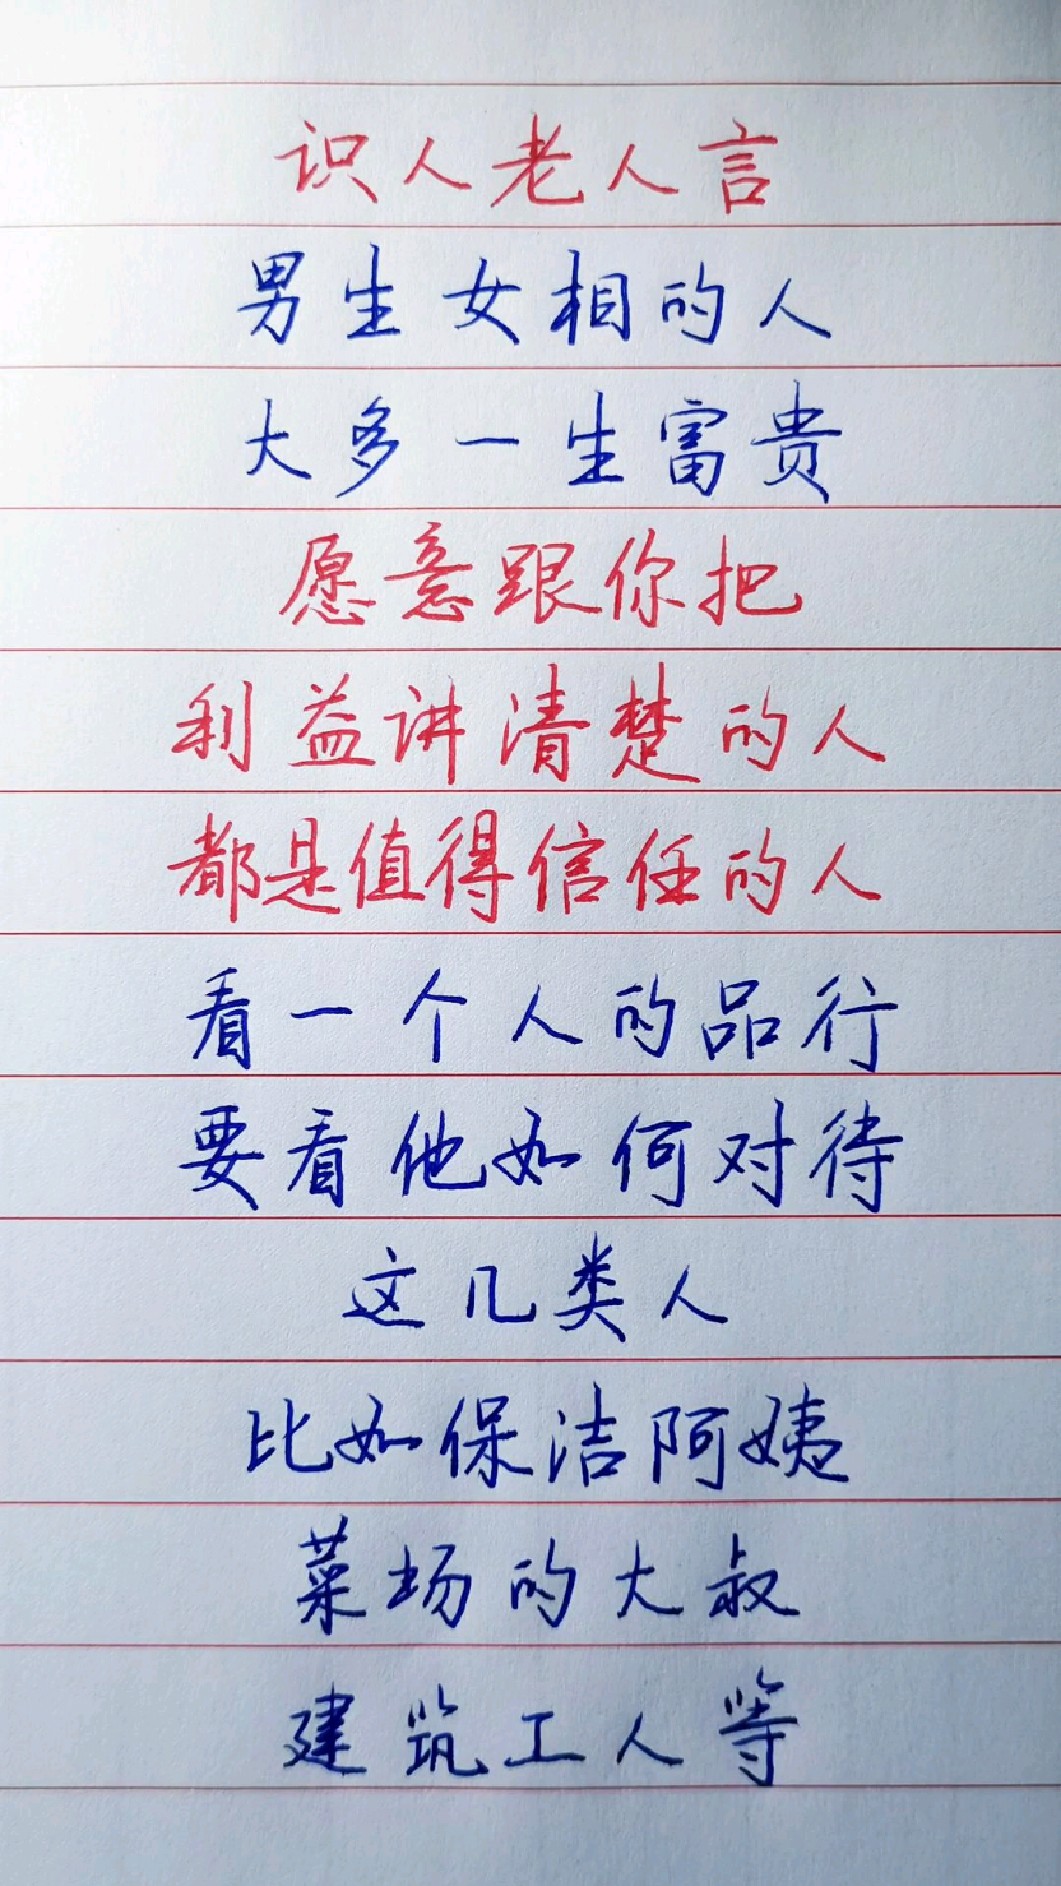 识人老人言
男生女相的人
大多一生富贵
愿意跟你把
利益讲清楚的人
都是值得信任的人
看一个人的品行
要看他如何对待
这几类人
比如保洁阿姨
菜场的大叔
建筑工人等